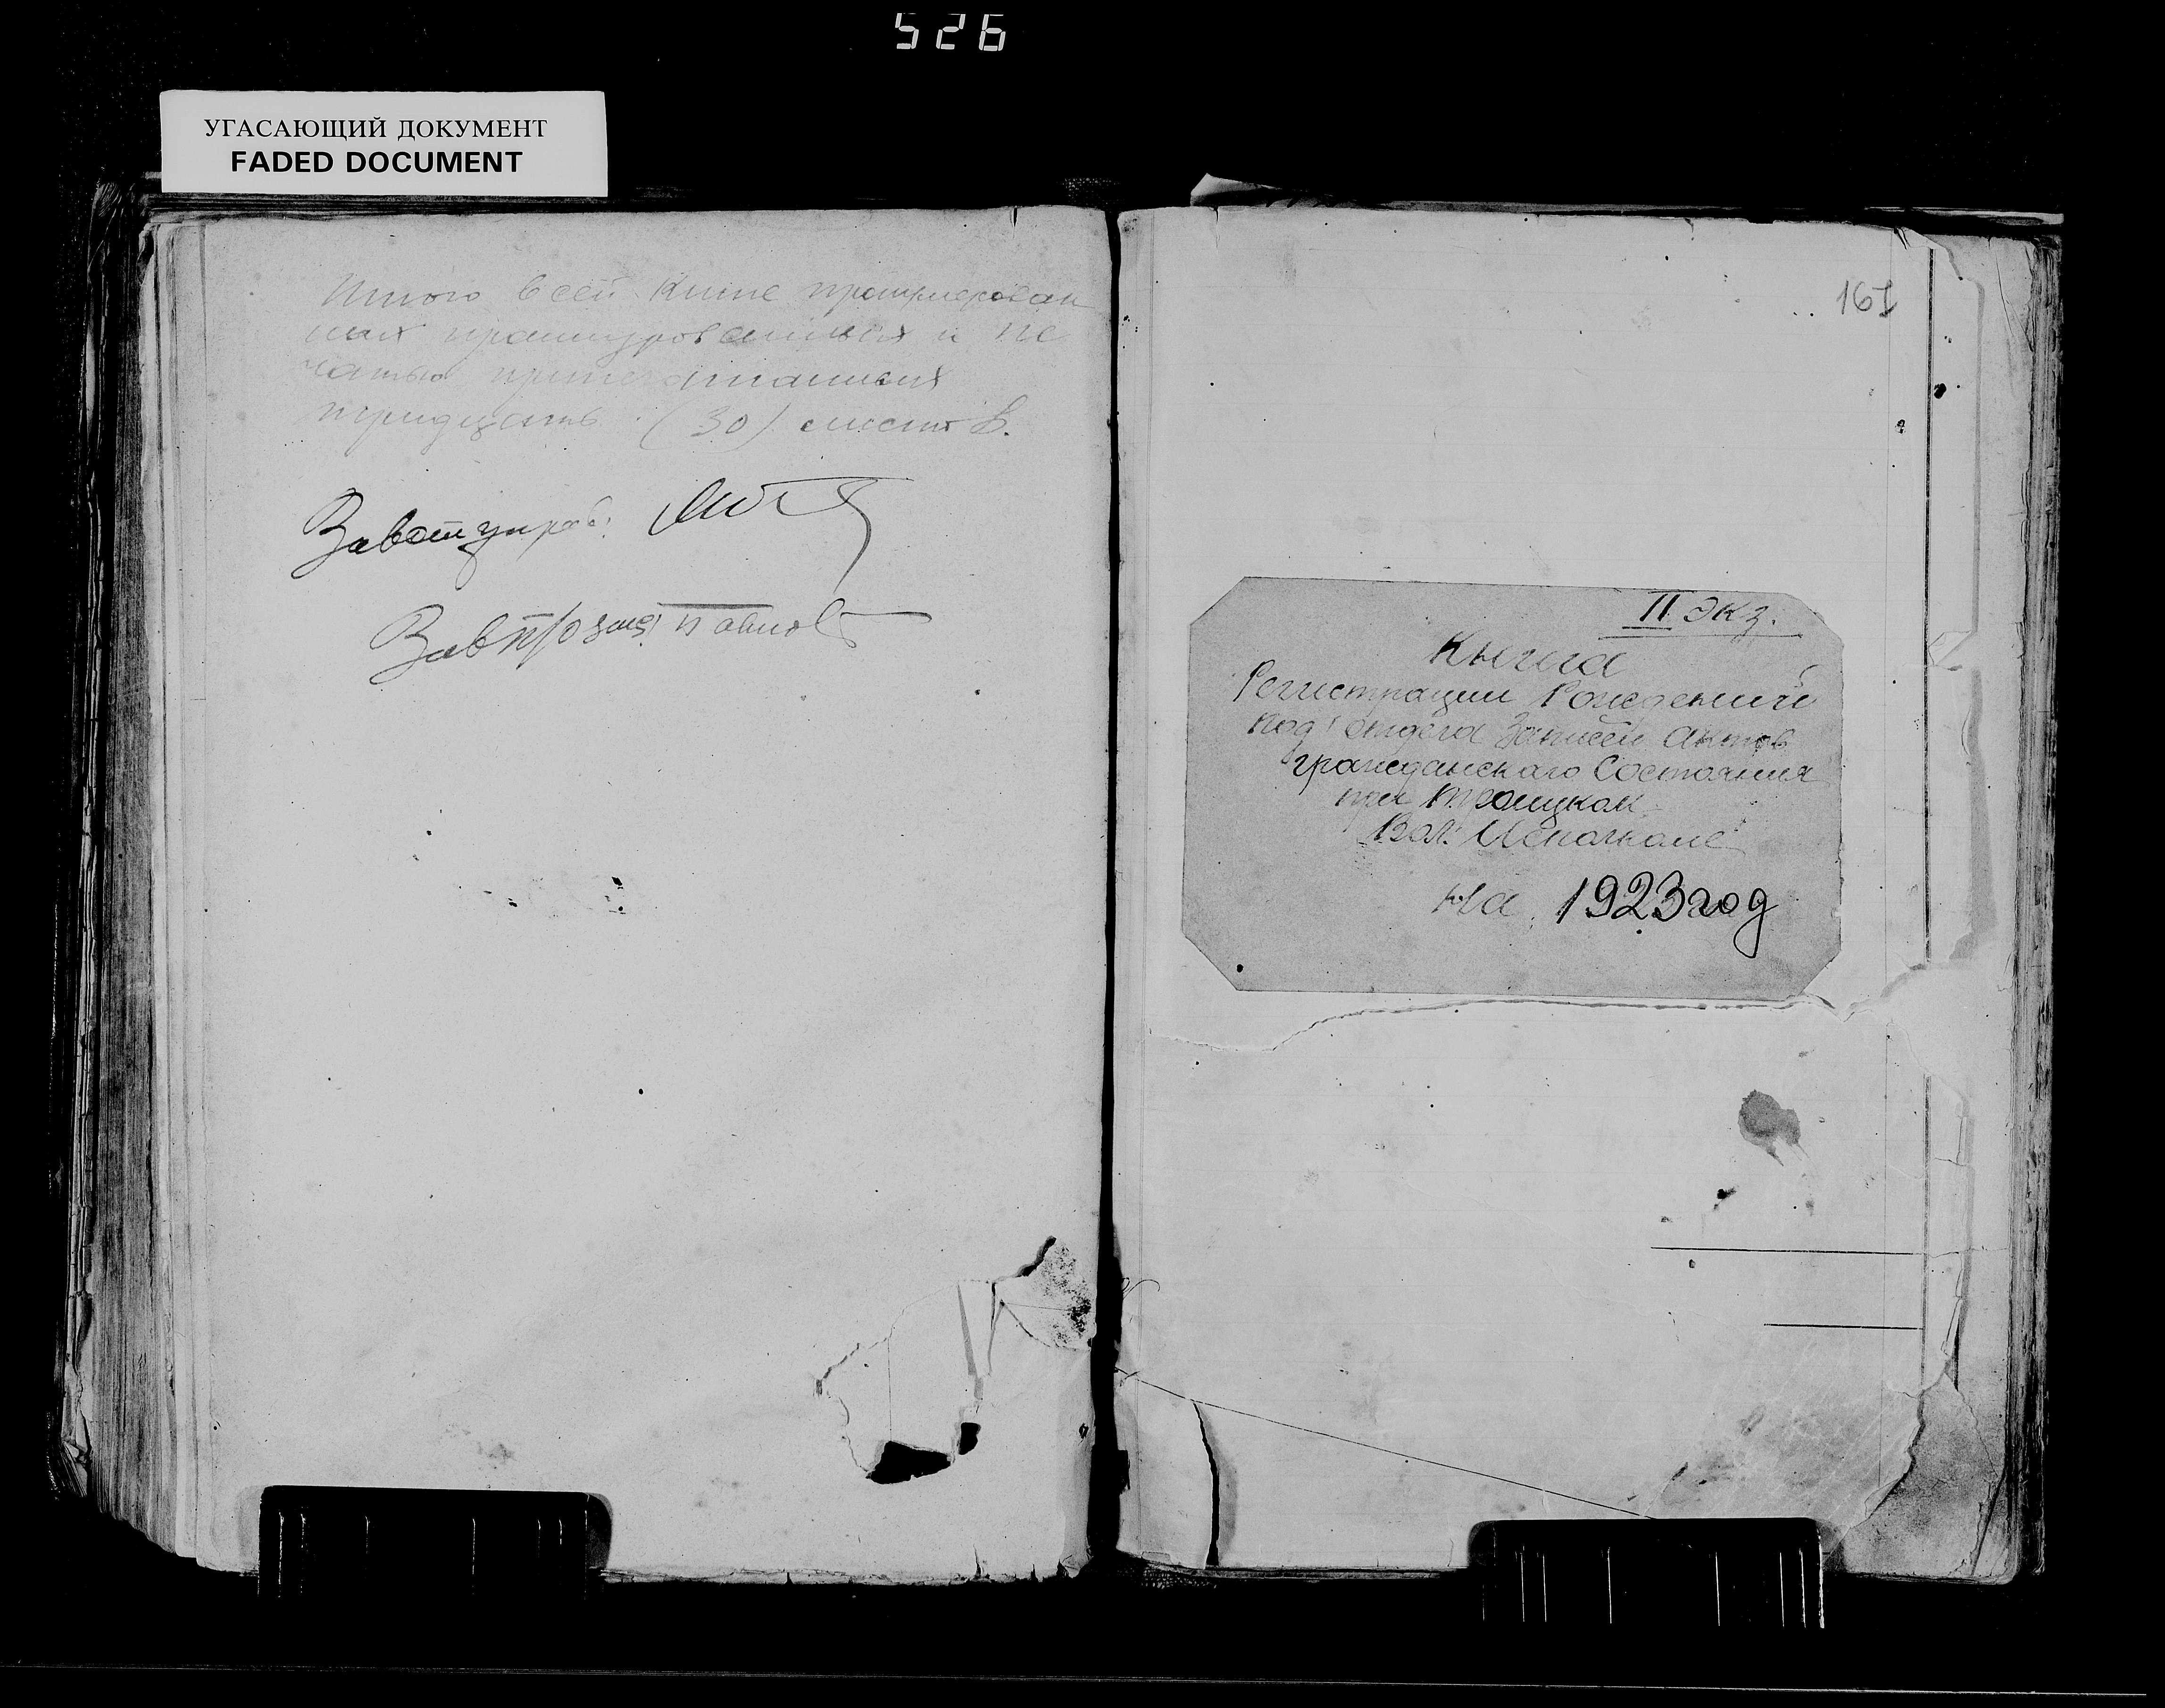 526
УГАСАЮЩИЙ ДОКУМЕНТ
FADED DOCUMENT
Итого всей книге пронумерован
ных прошнурованных и пе
чатью припечатанных
тридцать (30) листов.
Завотуправ:
161
II экз.
Книга
Регистрации Рождений
под'отдела Записей актов
гражданского Состояния
при Троицком
Вол. Исполкоме
на 1923 год